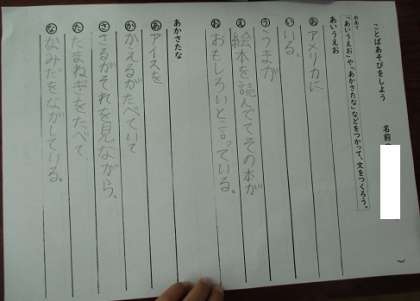 ことばあそびをしよう
名前
めあて
「あいうえお」や、「あかさたな」などをつかって、文をつくろう。
あいうえお
あ アメリカに
い いる
う うまが
え 絵本を読んでてその本が
お おもしろいと言っている。
あかさたな
あ アイスを
か かえるがたべていて
さ さるがそれを見ながら、
た たまねぎをたべて
な なみだをながしてける。